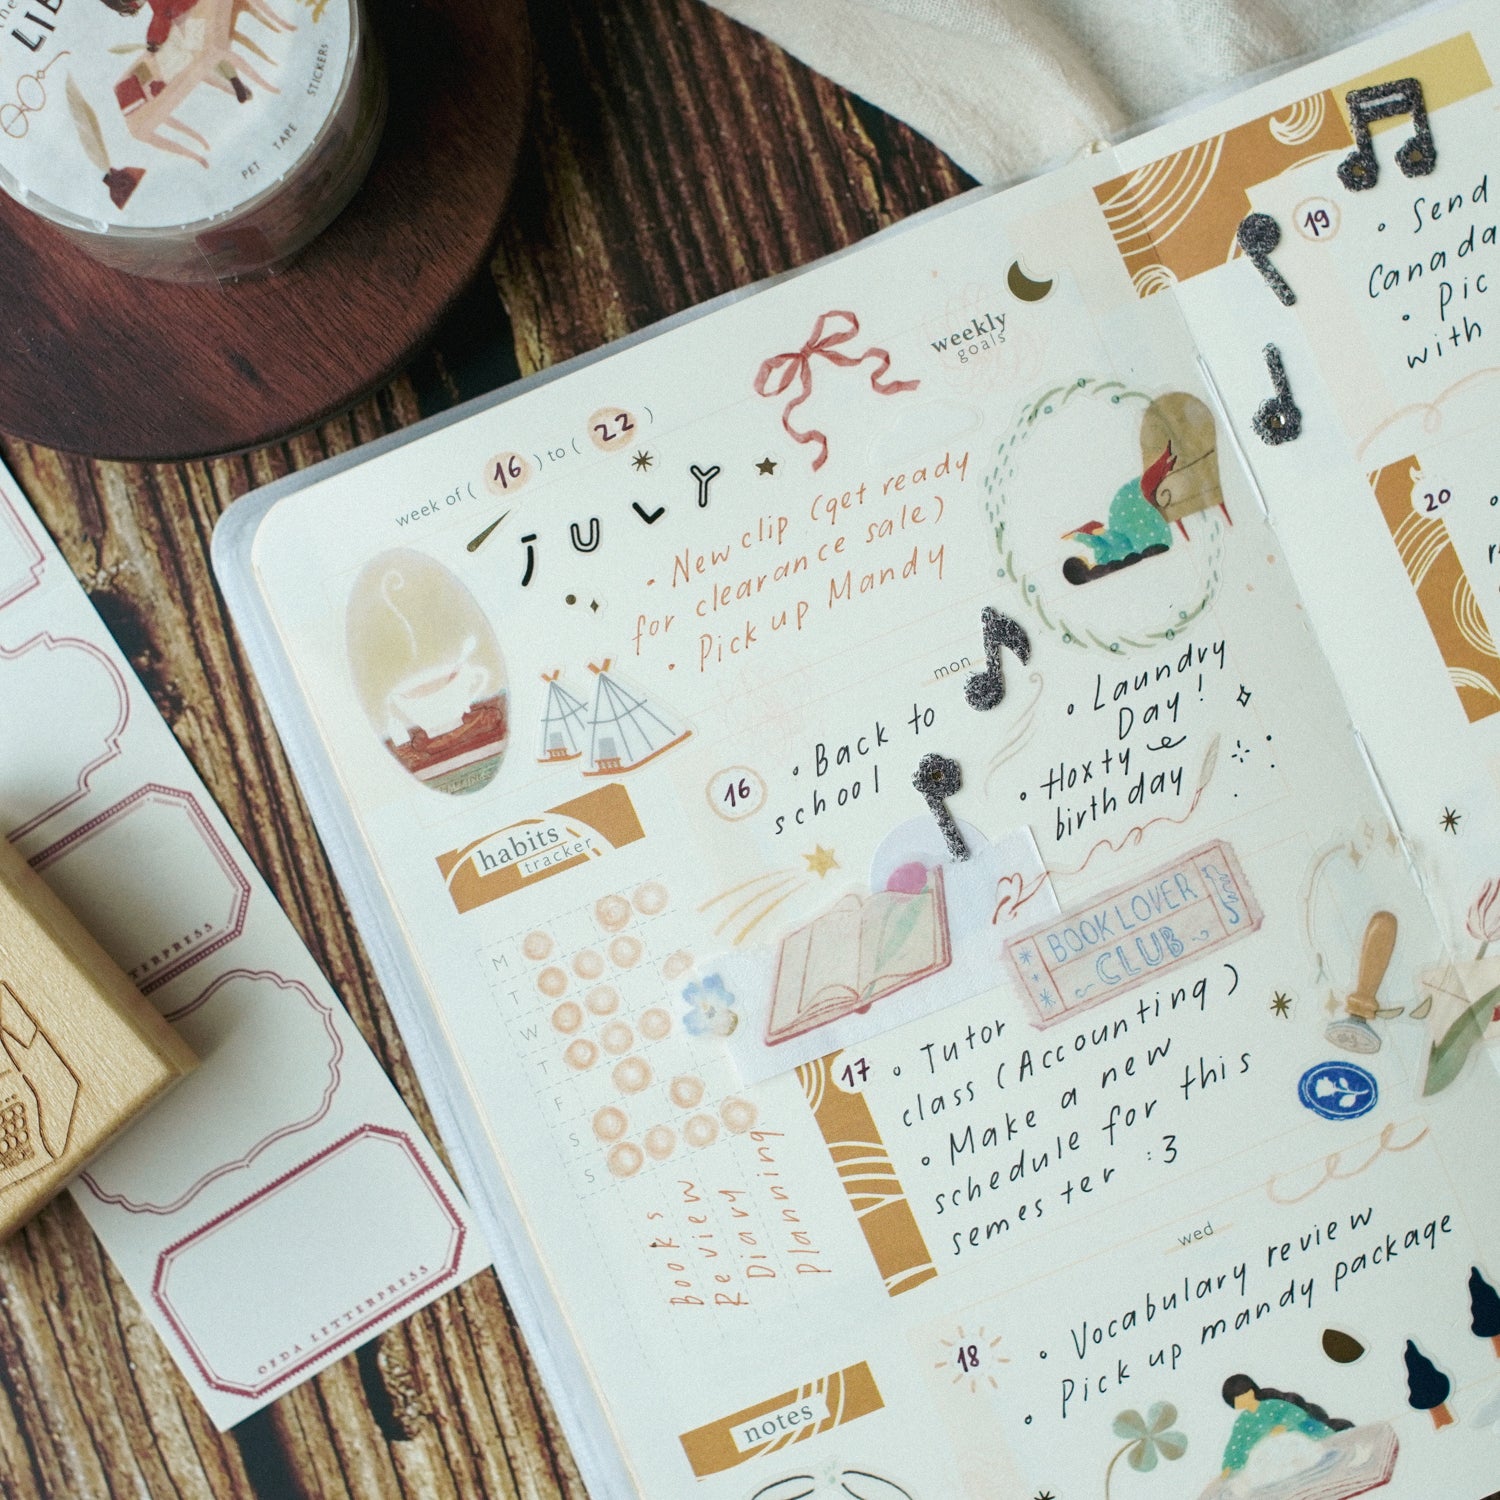 the
LIB
PET TAPE STICKERS
week of ( 16 ) to ( 22 )
JULY
weekly
goals
• New clip (get ready
for clearance sale)
• Pick up Mandy
habits
tracker
M
T
W
T
F
S
S
Books
Review
Diary
Planning
notes
mon
16
• Back to
school
• Laundry
Day!
• Hoxty
birthday
BOOK LOVER
CLUB
17
• Tutor
class (Accounting)
• Make a new
schedule for this
semester :3
wed
18
• Vocabulary review
• Pick up mandy package
19
• Send
Canada
• Pic
with
20
TERPRESS
OEDA LETTERPRESS